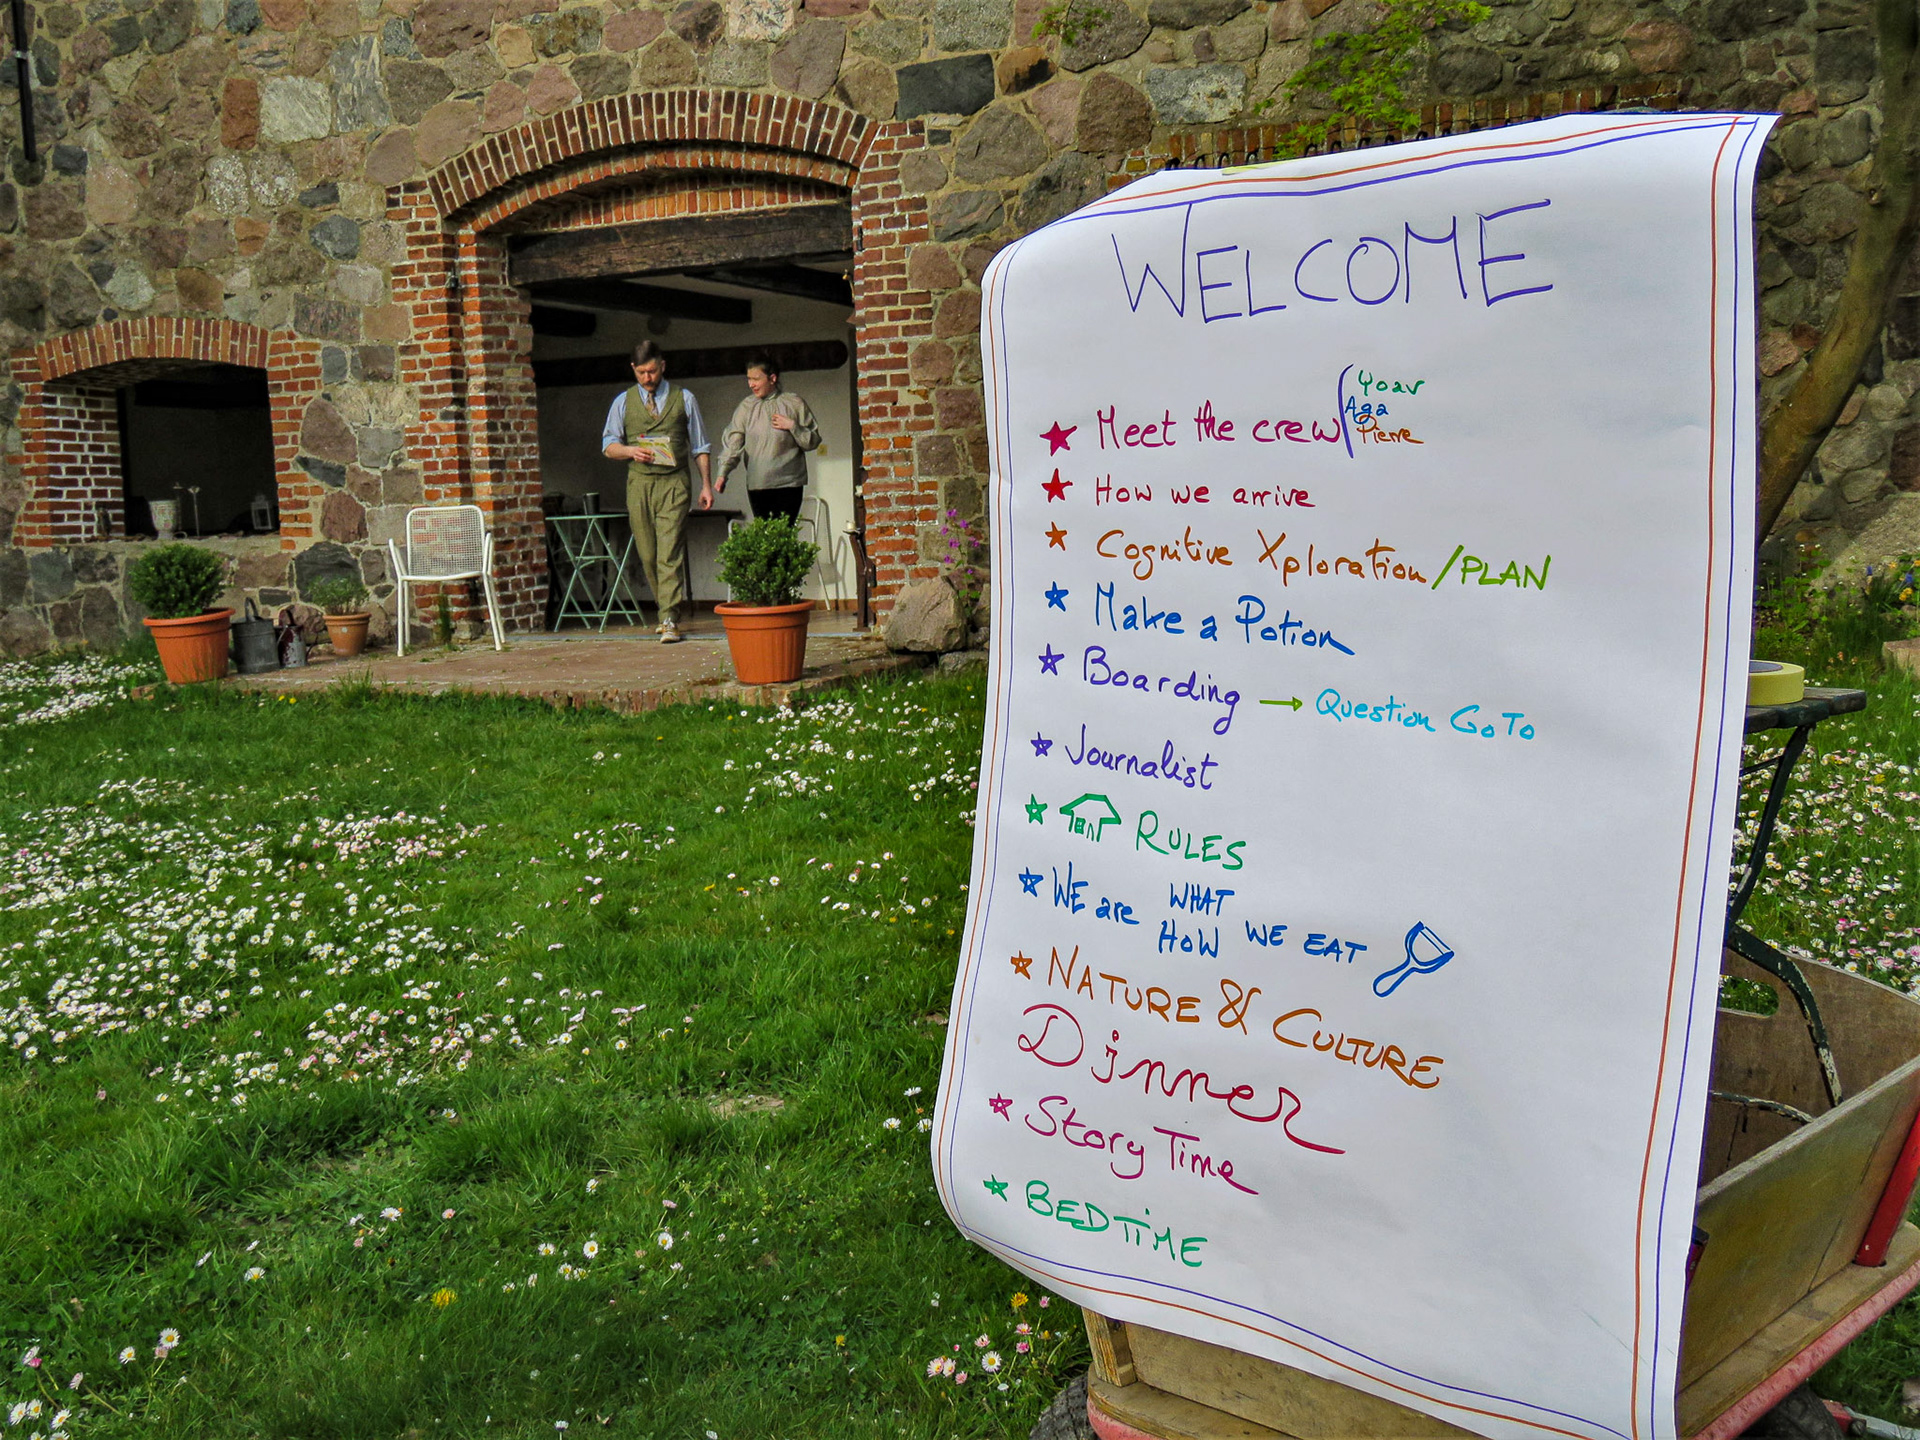 WELCOME
Meet the crew
Yoav
Aga
Pierre
How we arrive
Cognitive Xploration/PLAN
Make a Potion
Boarding → Question GoTo
Journalist
RULES
WE are WHAT HOW WE EAT
NATURE & CULTURE
Dinner
Story Time
BEDTIME